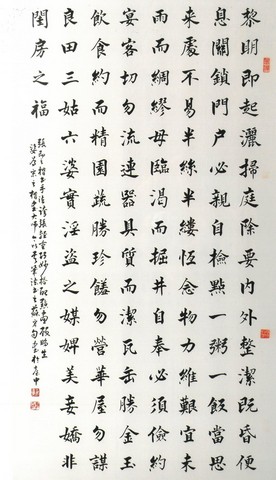 黎明即起灑掃庭除要內外整潔既昏便
息關鎖門戶必親自檢點一粥一飯當思
來處不易半絲半縷恆念物力維艱宜未
雨而綢繆毋臨渴而掘井自奉必須儉約
宴客切勿流連器具質而潔瓦缶勝金玉
飲食約而精園蔬勝珍饈勿營華屋勿謀
良田三姑六婆實淫盜之媒婢美妾嬌非
閨房之福